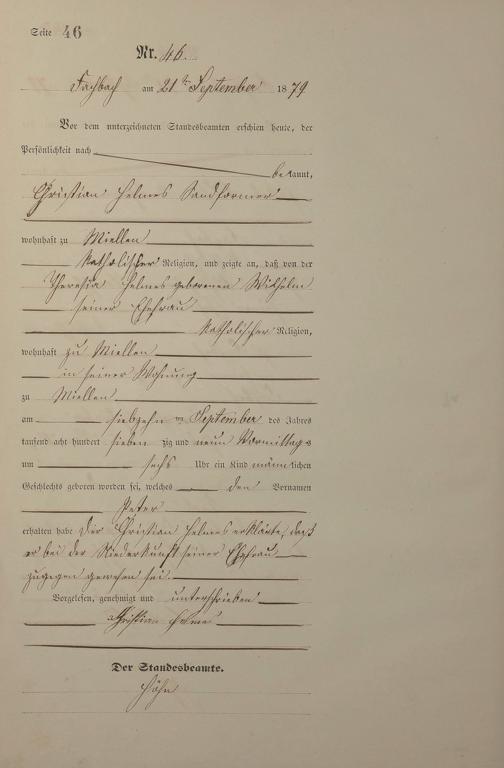 Seite 46
Nr. 46.
Fachbach am 21ten September 1879
Vor dem unterzeichneten Standesbeamten erschien heute, der
Persönlichkeit nach
bekannt,
Christian Helmes Sandformer
wohnhaft zu Miellen
katholischer Religion, und zeigte an, daß von der
Theresia Helmes geborenen Wilhelm
seiner Ehefrau
katholischer Religion,
wohnhaft zu Miellen
in seiner Wohnung
zu Miellen
am siebzehn ten September des Jahres
tausend acht hundert sieben zig und neun Vormittags
um sechs Uhr ein Kind männlichen
Geschlechts geboren worden sei, welches den Vornamen
Peter
erhalten habe Der Christian Helmes erklärte, daß
er bei der Niederkunft seiner Ehefrau
zugegen gewesen sei.
Vorgelesen, genehmigt und unterschrieben
Christian Helmes
Der Standesbeamte.
Höhn